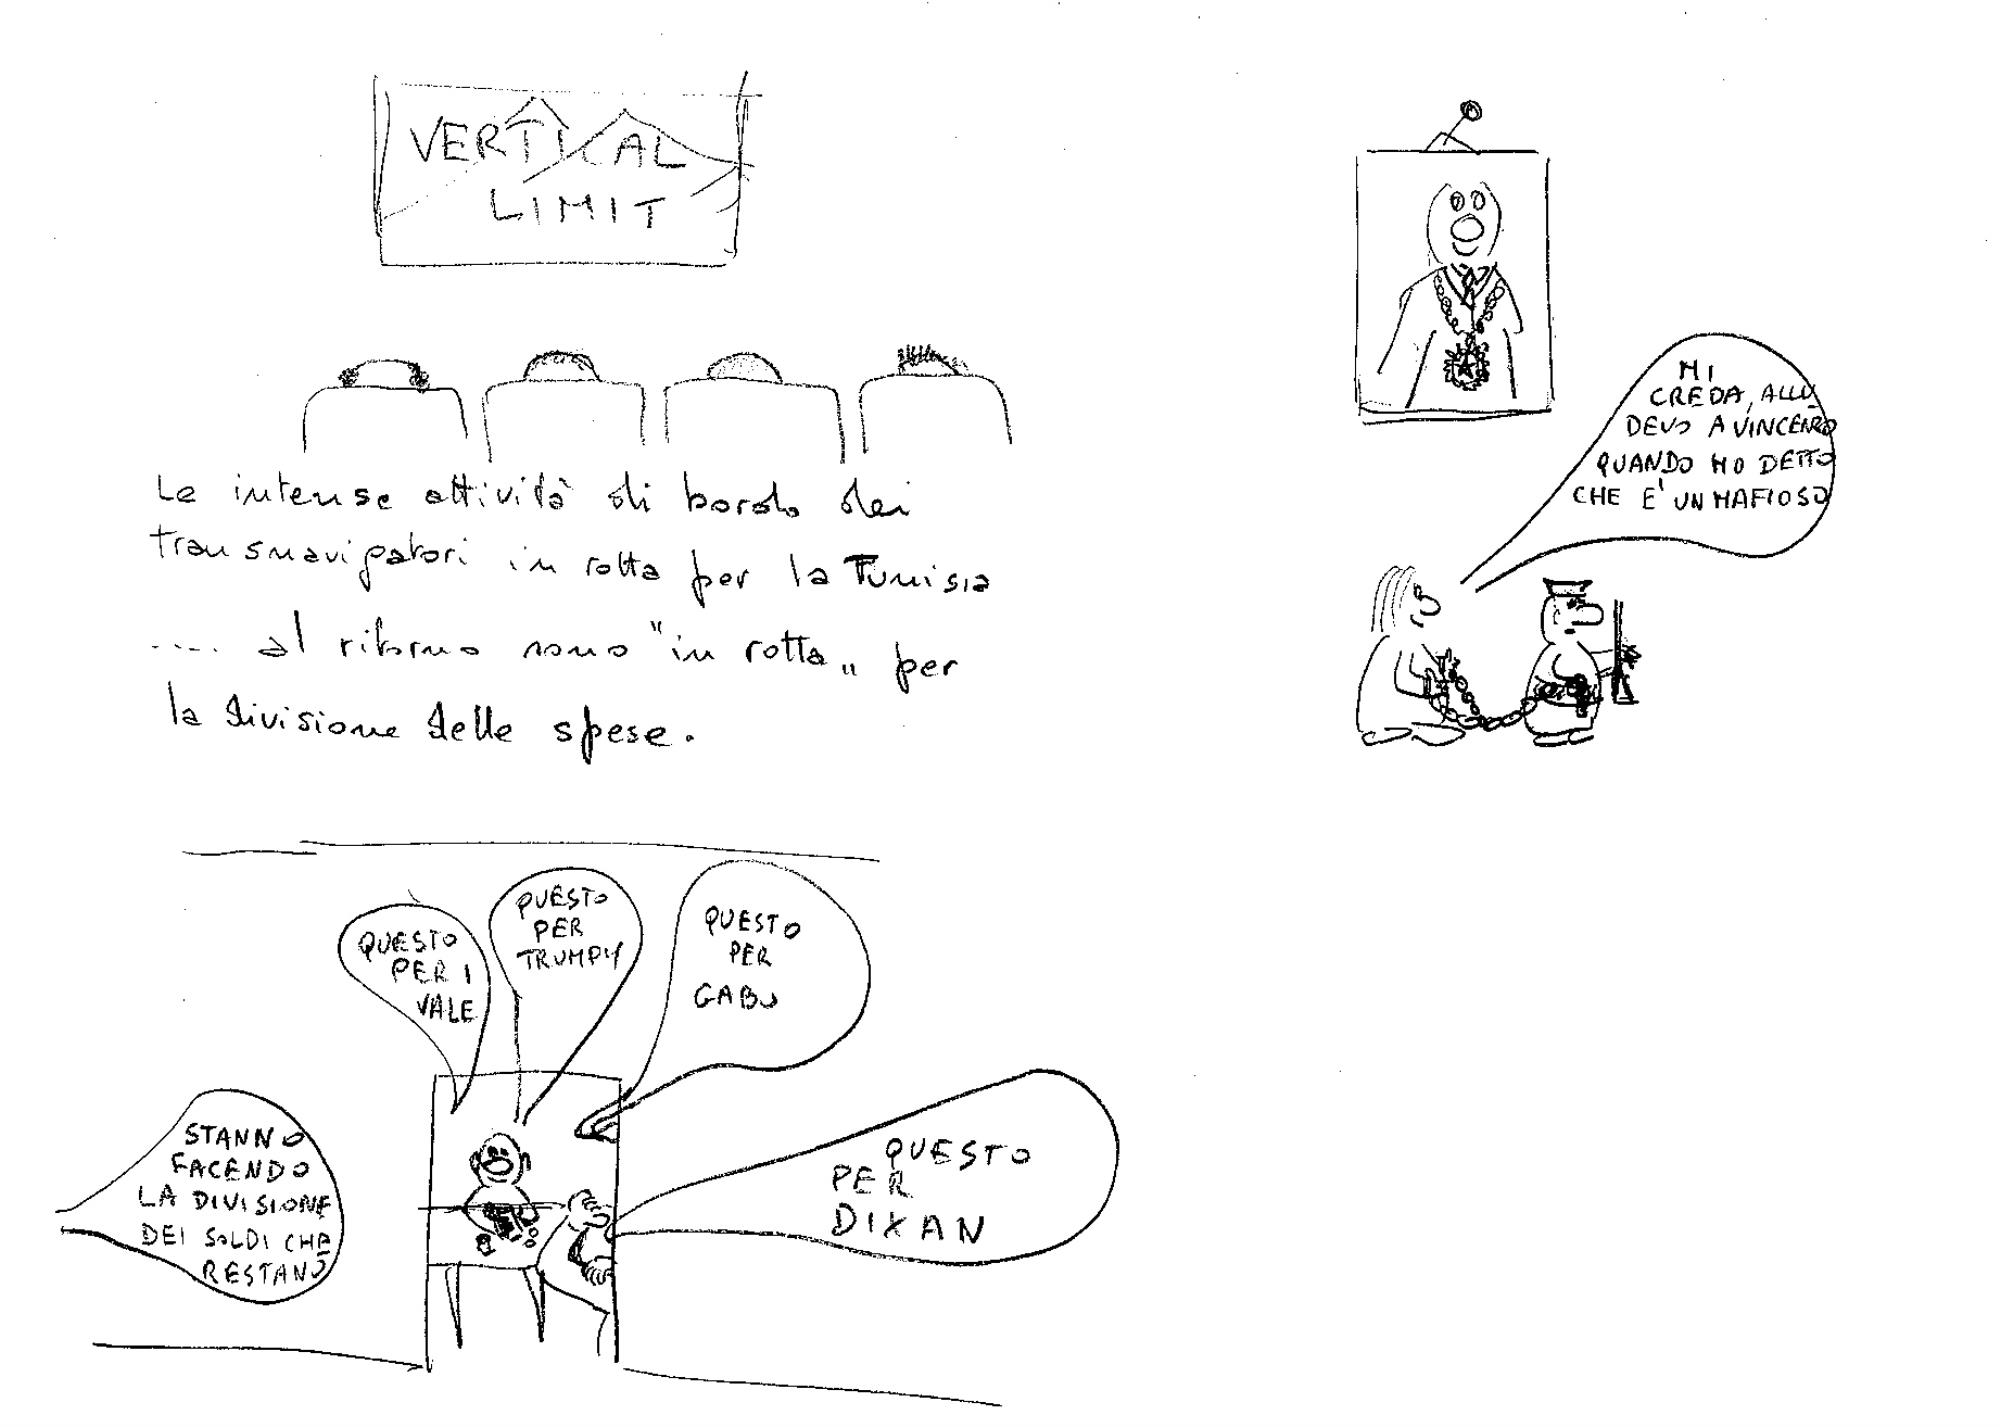 VERTICAL
LIMIT
Le intense attività di bordo dei
transnavigatori in rotta per la Tunisia
.... al ritorno sono "in rotta" per
la divisione delle spese.
MI
CREDA, ALLU
DEVO A VINCENZO
QUANDO HO DETTO
CHE E' UN MAFIOSO
QUESTO
PER I
VALE
QUESTO
PER
TRUMPY
QUESTO
PER
GABU
STANNO
FACENDO
LA DIVISIONE
DEI SOLDI CHE
RESTANO
QUESTO
PER
DIXAN